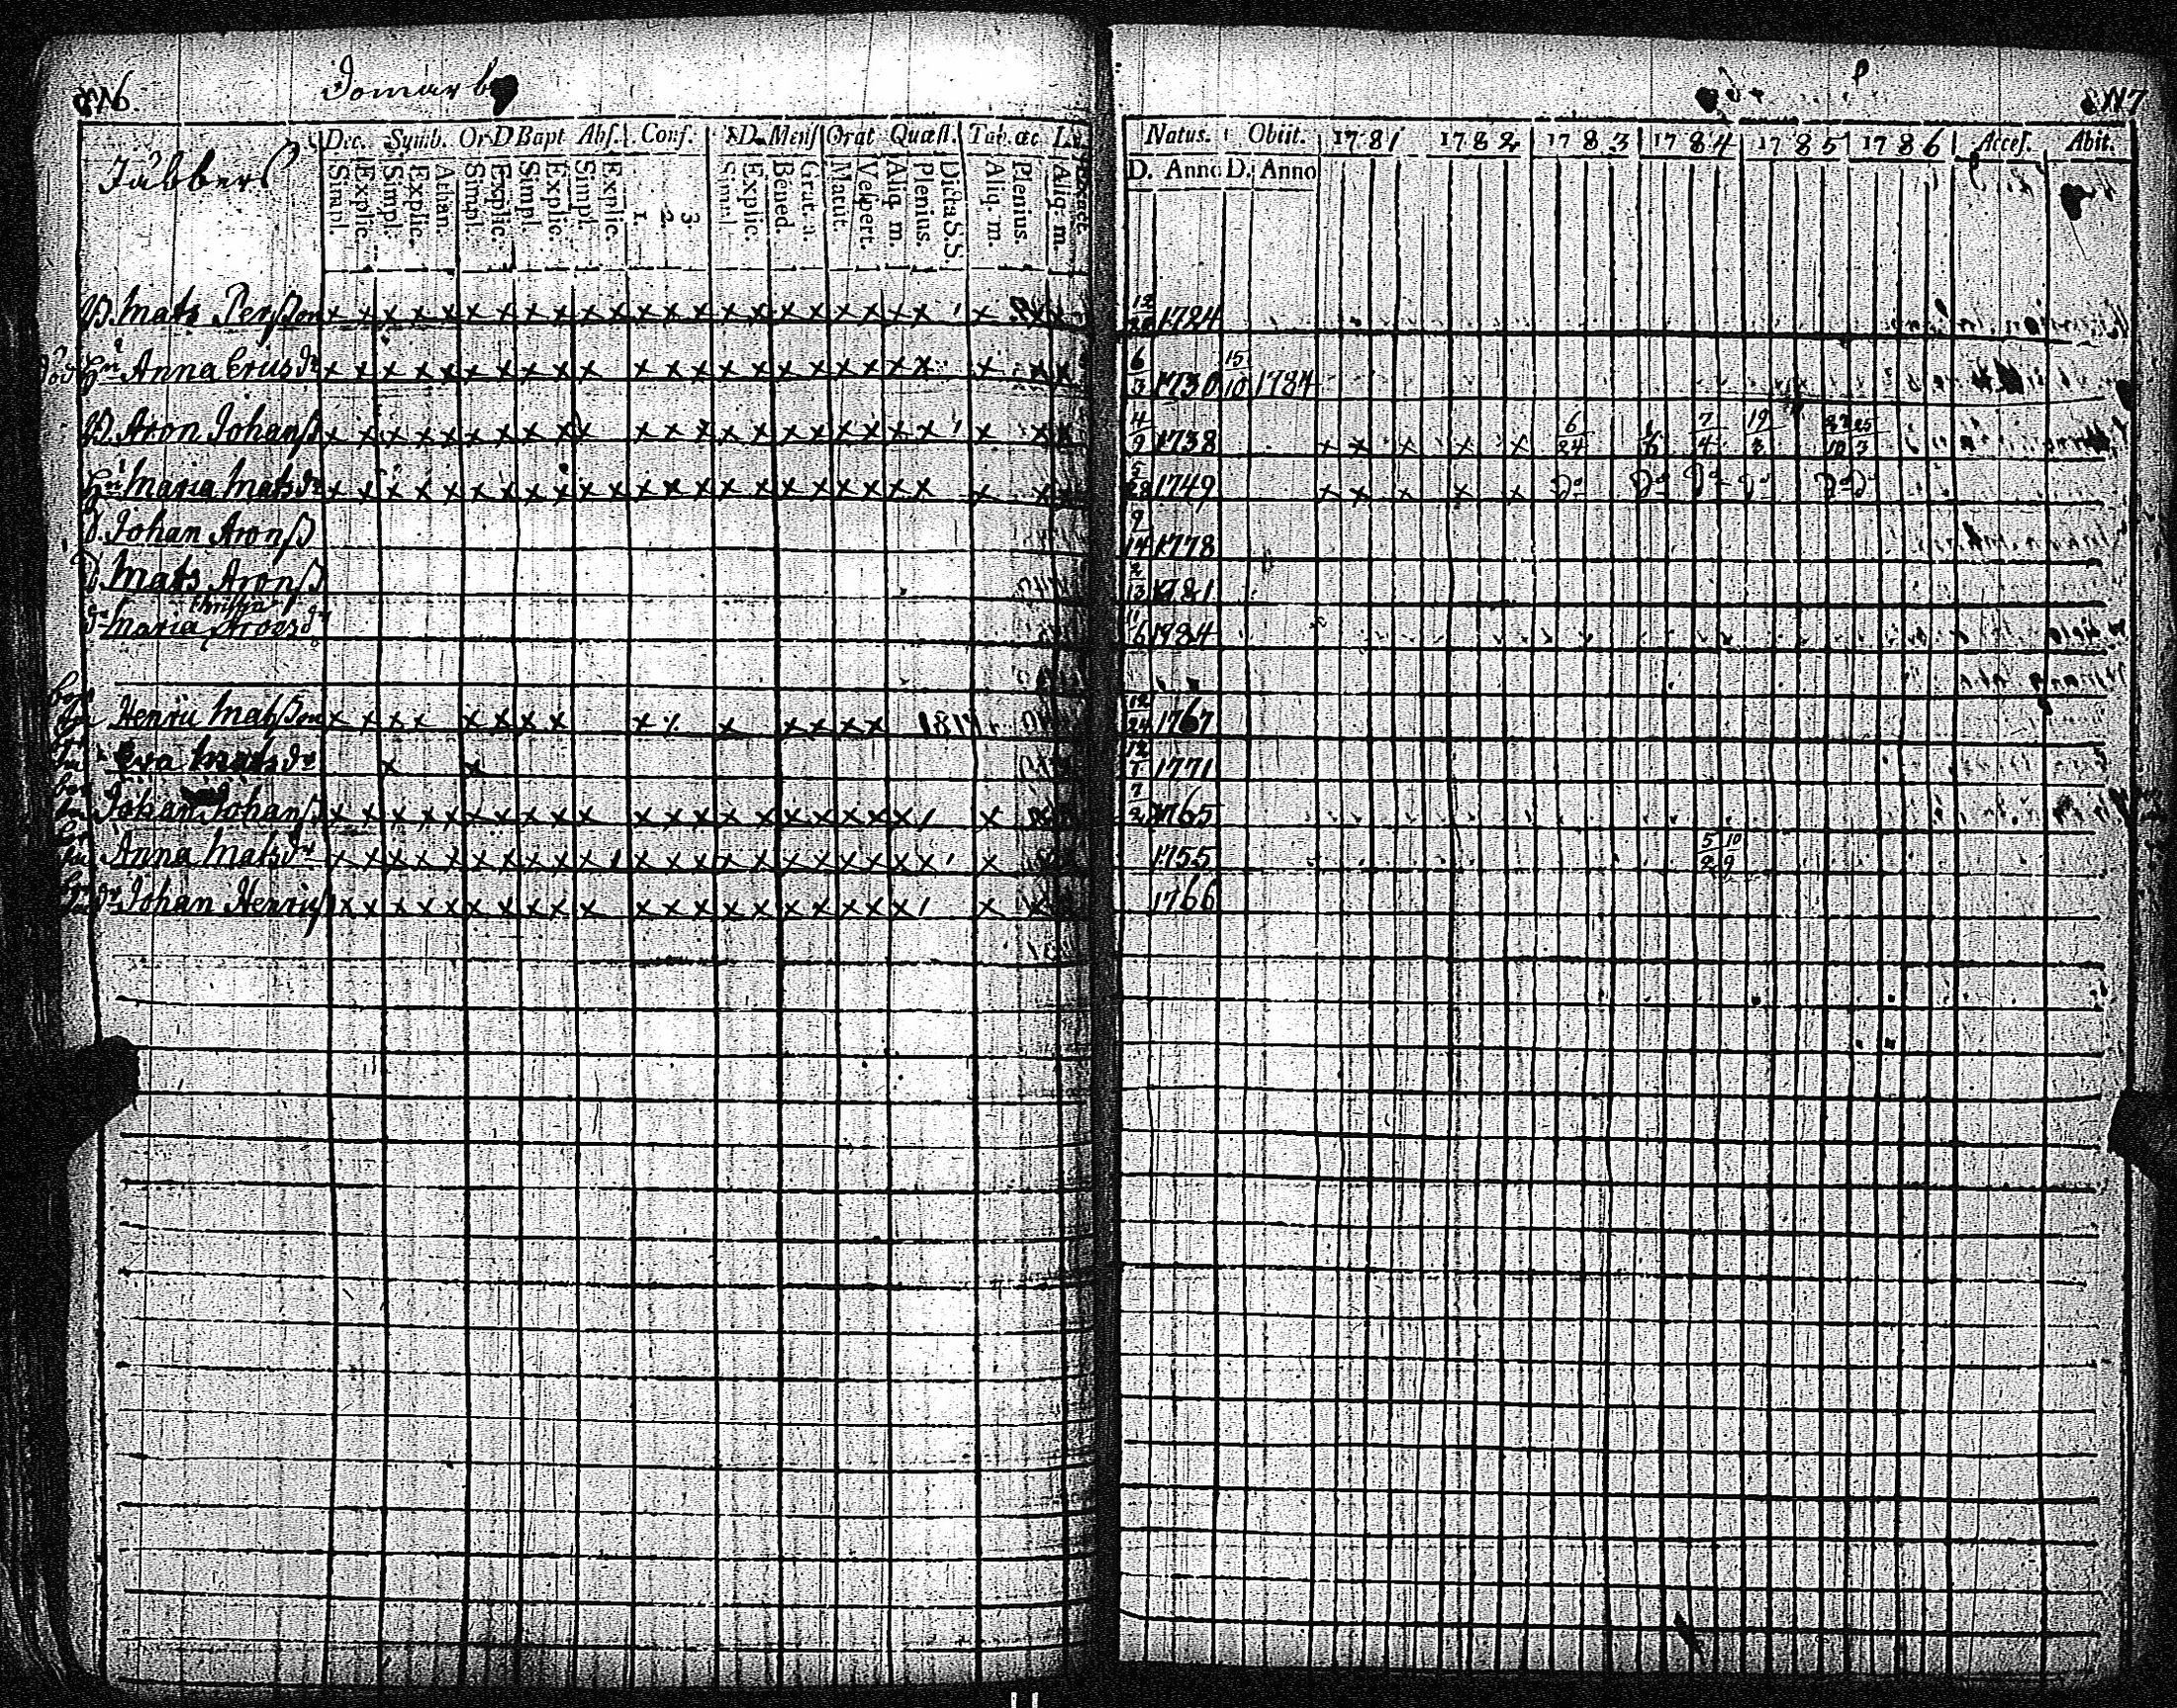 Domarby
Jåbbers
Dec. Symb. Or D Bapt Abſ. Conf. D. Menſ Orat Quæſt. Tab. œc
Simpl. Explic. Simpl. Explic. Athan. Simpl. Explic. Simpl. Explic. Simpl. Explic. 1. 2. 3. Simpl. Explic. Bened. Grat. a. Matut. Veſpert. Aliq. m. Plenius. Dicta S.S. Aliq. m. Plenius. Aliq. m.
B. Mats Perſſon x x x x x x x x x x x x x x x x x x x x x x
död Hu Anna Erics dr x x x x x x x x x x x x x x x x x x x x x
B. Aron Johanſſ x x x x x x x x x x x x x x x x x x x x x
Hu Maria Mats dr x x x x x x x x x x x x x x x x x x x x x x
Johan Aronſſ
Mats Aronſſ
Christina
Maria Arons dr
Henric Matsſſon x x x x x x x x x x x x x x
Eva Mats dr x x
Johan Johanſſ x x x x x x x x x x x x x x x x x x x x
Anna Mats dr x x x x x x x x x x x x x x x x x x x x
Johan Henricſſ x x x x x x x x x x x x x x x x x x x x
Natus. Obiit. 1781 1782 1783 1784 1785 1786 Acceſ. Abit.
D. Anno D. Anno
1724
6/3 1730 15/10 1784
4/9 1738 x x x x x 6/24 7/4 19/3
5/28 1749 x x x x x
9/14 1778
2/13 1781
11/6 1784
12/24 1767
12/1 1771
7/2 1765
1755 5/2 10/9
1766